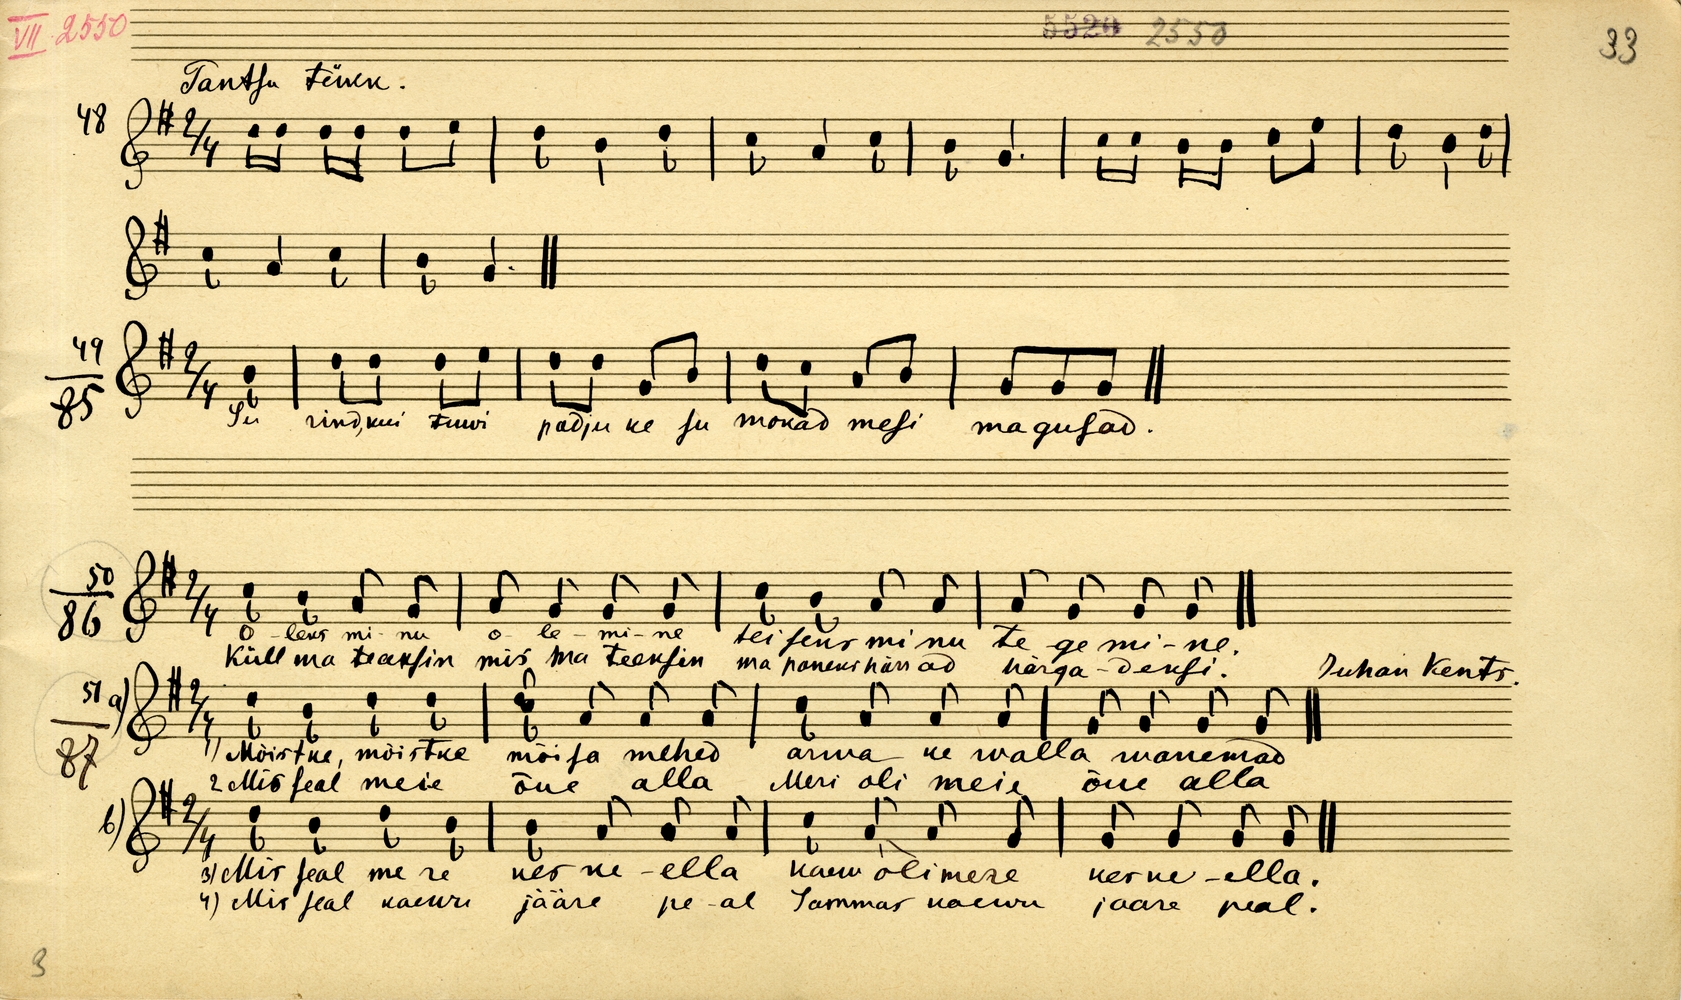 VII 2550 5520 2550 33
Tantsu
48
2/4
49
85
2/4
Su rind, kui tuwi padju ke su mokad mesi magusad.
50
86
2/4
O-leks mi-nu o-le-mi-ne teiseks minu te ge mi-ne.
Küll ma teaksin mis ma teeksin ma paneks härjad härga-deksi. Juhan Kents.
51 a)
87
2/4
1) Mõistke, mõistke mõisa mehed arwa ke walla wanemad
2 Mis seal meie õue alla Meri oli meie õue alla
b)
2/4
3) Mis seal me re kes ke-ella kaew oli mere keske-ella.
4) Mis seal kaewu jääre pe-al Sammas kaewu jaare peal.
3